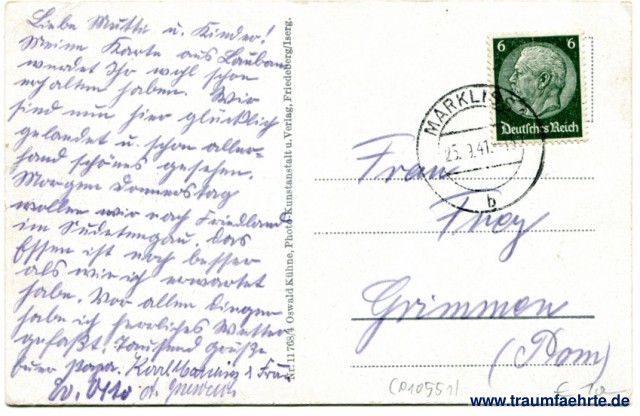 Liebe Mutti u. Kinder!
Meine Karte aus Lauban
werdet Ihr wohl schon
erhalten haben. Wir
sind nun hier glücklich
gelandet u. schon aller-
hand schönes gesehen.
Morgen Donnerstag
wollen wir nach Friedland
im Sudetengau. Das
Essen ist noch besser
als wie ich erwartet
habe. Vor allen Dingen
habe ich herrliches Wetter
gefaßt. Tausend Grüße
Euer Papa. Karl
Otto
Nr. 11768/4 Oswald Kühne, Photo-Kunstanstalt u. Verlag, Friedeberg/Iserg.
6 6
Deutsches Reich
MARKLISSA
25.9.41
b
Frau
Grimmen
(Pom)
(P10551)
www.traumfaehrte.de